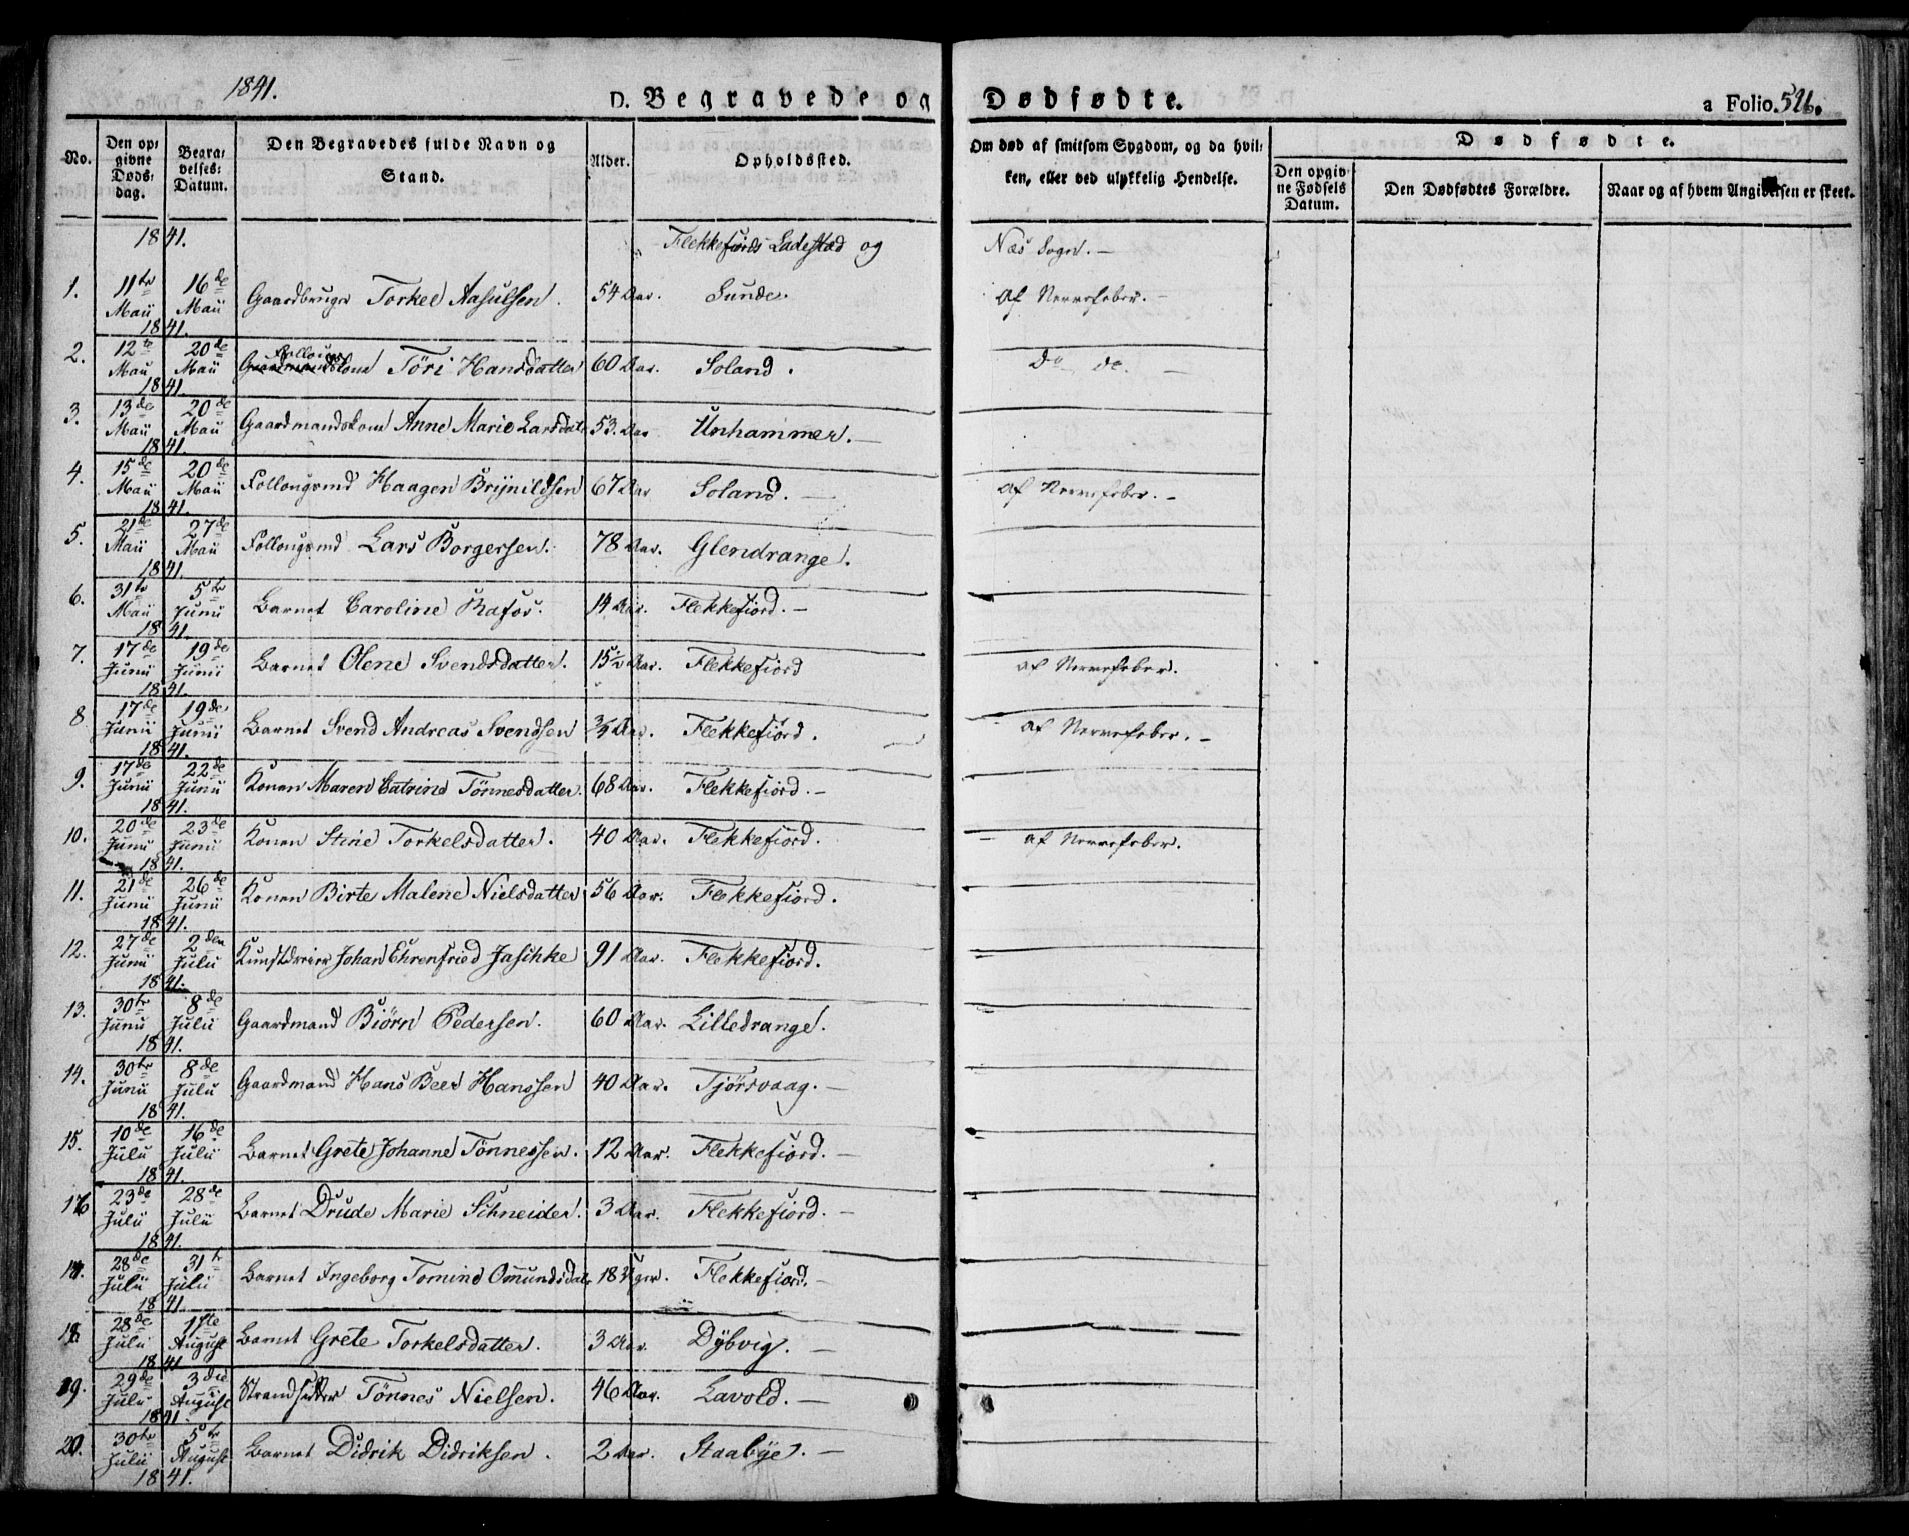 1841.
D. Begravede og Dødfødte.
a Folio. 526.
No. Den opgivne Dødsdag. Begravelses-Datum. Den Begravedes fulde Navn og Stand. Alder. Opholdssted. Om død af smitsom Sygdom, og da hvilken, eller ved ulykkelig Hendelse. Dødfødte.
Den opgivne Fødsels Datum. Den Dødfødtes Forældre. Naar og af hvem Angivelsen er skeet.
1841. Flekkefiords Ladestæd og Næs Sogn. –
1. 11te Maii 16de Maii 1841. Gaardbruger Torkel Aasulsen. 54 Aar. Sunde. af Nervefeber. –
2. 12te Maii 20de Maii 1841. Follougskone Töri Hansdatter 60 Aar. Soland. Do do. –
3. 13de Maii 20de Maii 1841. Gaardmandskone Anne Marie Larsdatr 53. Aar Unhammer. –
4. 15de Maii 20de Maii 1841. Follougsmd Haagen Brijnildsen 67 Aar Soland. – af Nervefeber. –
5. 21de Maii 27de Maii 1841. Follougsmd Lars Borgersen. 78 Aar. Glendrange.
6. 31te Maii 5te Junii 1841. Barnet Caroline Rafos. 14 Aar. Flekkefiord. –
7. 17de Junii 19de Junii 1841. Barnet Olene Svendsdatter. 15½ Aar. Flekkefiord af Nervefeber.
8 17de Junii 19de Junii 1841. Barnet Svend Andreas Svendsen ¾ Aar. Flekkefiord. af Nervefeber. –
9. 17de Junii 22de Junii 1841. Konen Maren Catrine Tönnesdatter. 68 Aar. Flekkefiord. –
10. 20de Junii 23de Junii 1841. Konen Stine Torkelsdatter. 40 Aar. Flekkefiord. af Nervefeber.
11. 21de Junii 26de Junii 1841. Konen Birte Malene Nielsdatter 56 Aar. Flekkefiord.
12. 27de Junii 2den Julii 1841. Kunstdreier Johan Ehrenfried Jaschke 91 Aar. Flekkefiord.
13. 30te Junii 8de Julii 1841. Gaardmand Biørn Pedersen. 60 Aar. Lilledrange.
14. 30te Junii 8de Julii 1841. Gaardmand Hans Beer Hanssen 40 Aar. Tjörsvaag. –
15. 10de Julii 16de Julii 1841. Barnet Grete Johanne Tönnessen. 12 Aar. Flekkefiord. –
16 23de Julii 28de Julii 1841. Barnet Drude Marie Schneider. 3 Aar. Flekkefiord. –
17. 28de Julii 31te Julii 1841. Barnet Ingeborg Tomine Omundsdatr 18 Uger. Flekkefiord. –
18. 28de Julii 1ste August 1841 Barnet Grete Torkelsdatter. 3 Aar. Dybvig. –
19. 29de Julii 3die August 1841. Strandsidder Tönnes Nielsen. 46 Aar. Lavold. –
20. 30te Julii 5te August 1841. Barnet Didrik Didriksen. 2 Aar. Staabye. –